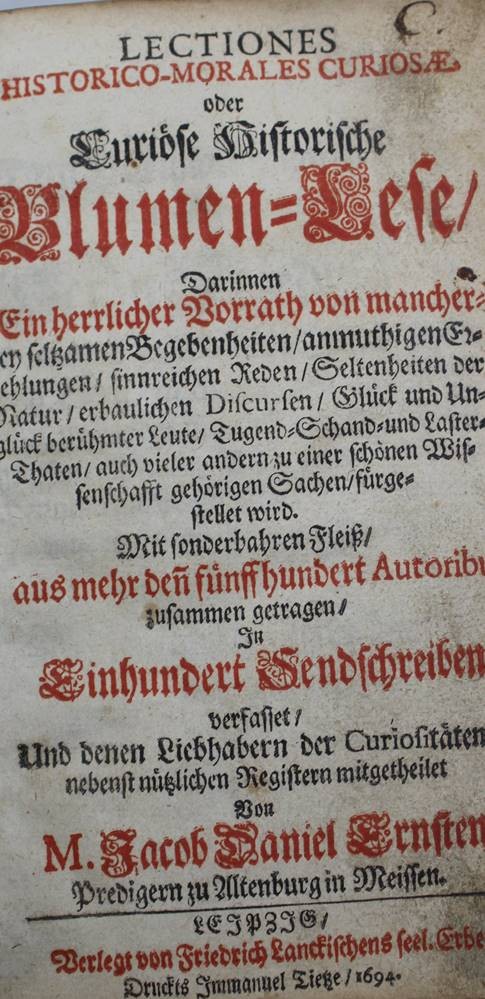 C.
LECTIONES
HISTORICO-MORALES CURIOSÆ,
oder
Curiöse Historische
Blumen-Lese/
Darinnen
Ein herrlicher Vorrath von mancher-
ey seltzamen Begebenheiten/anmuthigen Er-
ehlungen/ sinnreichen Reden/ Seltenheiten der
Natur/ erbaulichen Discursen/ Glück und Un-
glück berühmter Leute/ Tugend-Schand-und Laster-
Thaten/ auch vieler andern zu einer schönen Wis-
senschafft gehörigen Sachen/fürge-
stellet wird.
Mit sonderbahren Fleiß/
aus mehr deñ fünff hundert Autoribu
zusammen getragen/
In
Einhundert Sendschreiben
verfasset/
Und denen Liebhabern der Curiositäten
nebenst nützlichen Registern mitgetheilet
Von
M. Jacob Daniel Ernsten
Predigern zu Altenburg in Meissen.
LEIPZIG/
Verlegt von Friedrich Lanckischens seel. Erbe
Druckts Immanuel Tietze/1694.